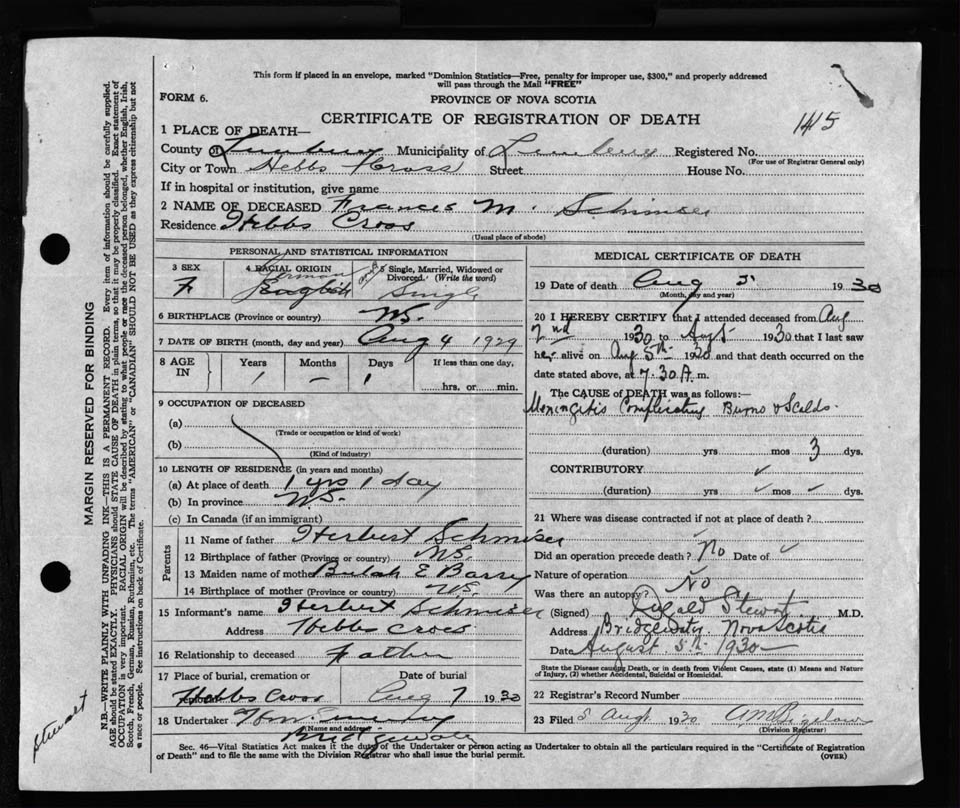 This form if placed in an envelope, marked "Dominion Statistics—Free, penalty for improper use, $300," and properly addressed
will pass through the Mail "FREE"
FORM 6.
PROVINCE OF NOVA SCOTIA
CERTIFICATE OF REGISTRATION OF DEATH
1415
1 PLACE OF DEATH—
County of Lunenburg Municipality of Lunenburg Registered No.
(For use of Registrar General only)
City or Town Hebbs Cross Street House No.
If in hospital or institution, give name
2 NAME OF DECEASED Frances M. Schmiser
Residence Hebbs Cross
(Usual place of abode)
PERSONAL AND STATISTICAL INFORMATION
3 SEX
F
4 RACIAL ORIGIN
German
English
5 Single, Married, Widowed or Divorced. (Write the word)
Single
6 BIRTHPLACE (Province or country) N.S.
7 DATE OF BIRTH (month, day and year) Aug 4 1929
8 AGE IN
Years Months Days If less than one day,
1 — 1 hrs. or min.
9 OCCUPATION OF DECEASED
(a)
(Trade or occupation or kind of work)
(b)
(Kind of industry)
10 LENGTH OF RESIDENCE (in years and months)
(a) At place of death 1 yrs 1 day
(b) In province N.S.
(c) In Canada (if an immigrant)
Parents
11 Name of father Herbert Schmiser
12 Birthplace of father (Province or country) N.S.
13 Maiden name of mother Bulah E Barry
14 Birthplace of mother (Province or country) N.S.
15 Informant's name Herbert Schmiser
Address Hebbs Cross
16 Relationship to deceased Father
17 Place of burial, cremation or removal Date of burial
Hebbs Cross Aug 7 1930
18 Undertaker
Name and address
Bridgewater
MEDICAL CERTIFICATE OF DEATH
19 Date of death Aug 5 1930
(Month, day and year)
20 I HEREBY CERTIFY that I attended deceased from Aug
2nd 1930 to Aug 5 1930 that I last saw
her alive on Aug 5th 1930 and that death occurred on the
date stated above, at 7.30 A. m.
The CAUSE of DEATH was as follows:—
Meningitis Complicating Burns & Scalds.
(duration) yrs mos 3 dys.
CONTRIBUTORY
(duration) yrs mos dys.
21 Where was disease contracted if not at place of death?
Did an operation precede death? No Date of
Nature of operation
Was there an autopsy? No
(Signed) Dugald Stewart M.D.
Address Bridgewater Nova Scotia
Date August 5th 1930
State the Disease causing Death, or in death from Violent Causes, state (1) Means and Nature
of Injury, (2) whether Accidental, Suicidal or Homicidal.
22 Registrar's Record Number
23 Filed 5 Aug 1930 AM Bigelow
(Division Registrar)
Sec. 46—Vital Statistics Act makes it the duty of the Undertaker or person acting as Undertaker to obtain all the particulars required in the "Certificate of Registration
of Death" and to file the same with the Division Registrar who shall issue the burial permit.
(OVER)
MARGIN RESERVED FOR BINDING
N.B.—WRITE PLAINLY WITH UNFADING INK—THIS IS A PERMANENT RECORD. Every item of information should be carefully supplied.
AGE should be stated EXACTLY. PHYSICIANS should STATE CAUSE OF DEATH in plain terms, so that it may be properly classified. Exact statement of
OCCUPATION is very important. RACIAL ORIGIN will be described by stating to what people or race the deceased person belonged, whether English, Irish,
Scotch, French, German, Russian, Ruthenian, etc. The terms "AMERICAN" or "CANADIAN" SHOULD NOT BE USED as they express citizenship but not
a race or people. See instructions on back of Certificate.
Stewart